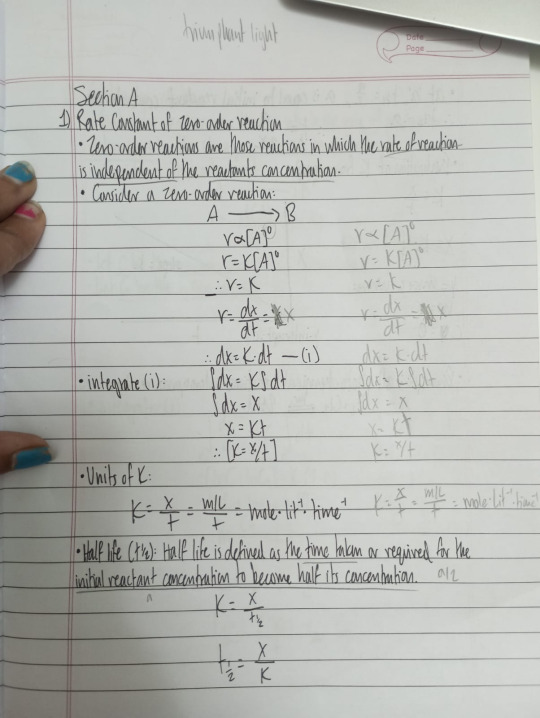 triumphant light
Date
Page
Section A
1) Rate Constant of zero-order reaction
• Zero-order reactions are those reactions in which the rate of reaction
is independent of the reactants concentration.
• Consider a zero-order reaction:
A → B
r∝[A]⁰ r∝[A]⁰
r=K[A]⁰ r=K[A]⁰
∴r=K r=k
r=dx/dt= X r=dx/dt= X
∴dx=K·dt —(i) dx=k·dt
• integrate (i): ∫dx=K∫dt ∫dx=K∫dt
∫dx=X ∫dx=X
x=Kt x=Kt
∴[K=x/t] K=x/t
• Units of K:
K=X/t=m/L/t=mole·lit⁻¹·time⁻¹ K=X/t=m/L/t=mole·lit⁻¹·time⁻¹
• Half life (t½): Half life is defined as the time taken or required for the
initial reactant concentration to become half its concentration. a/2
a
K=X/t½
t½=X/K